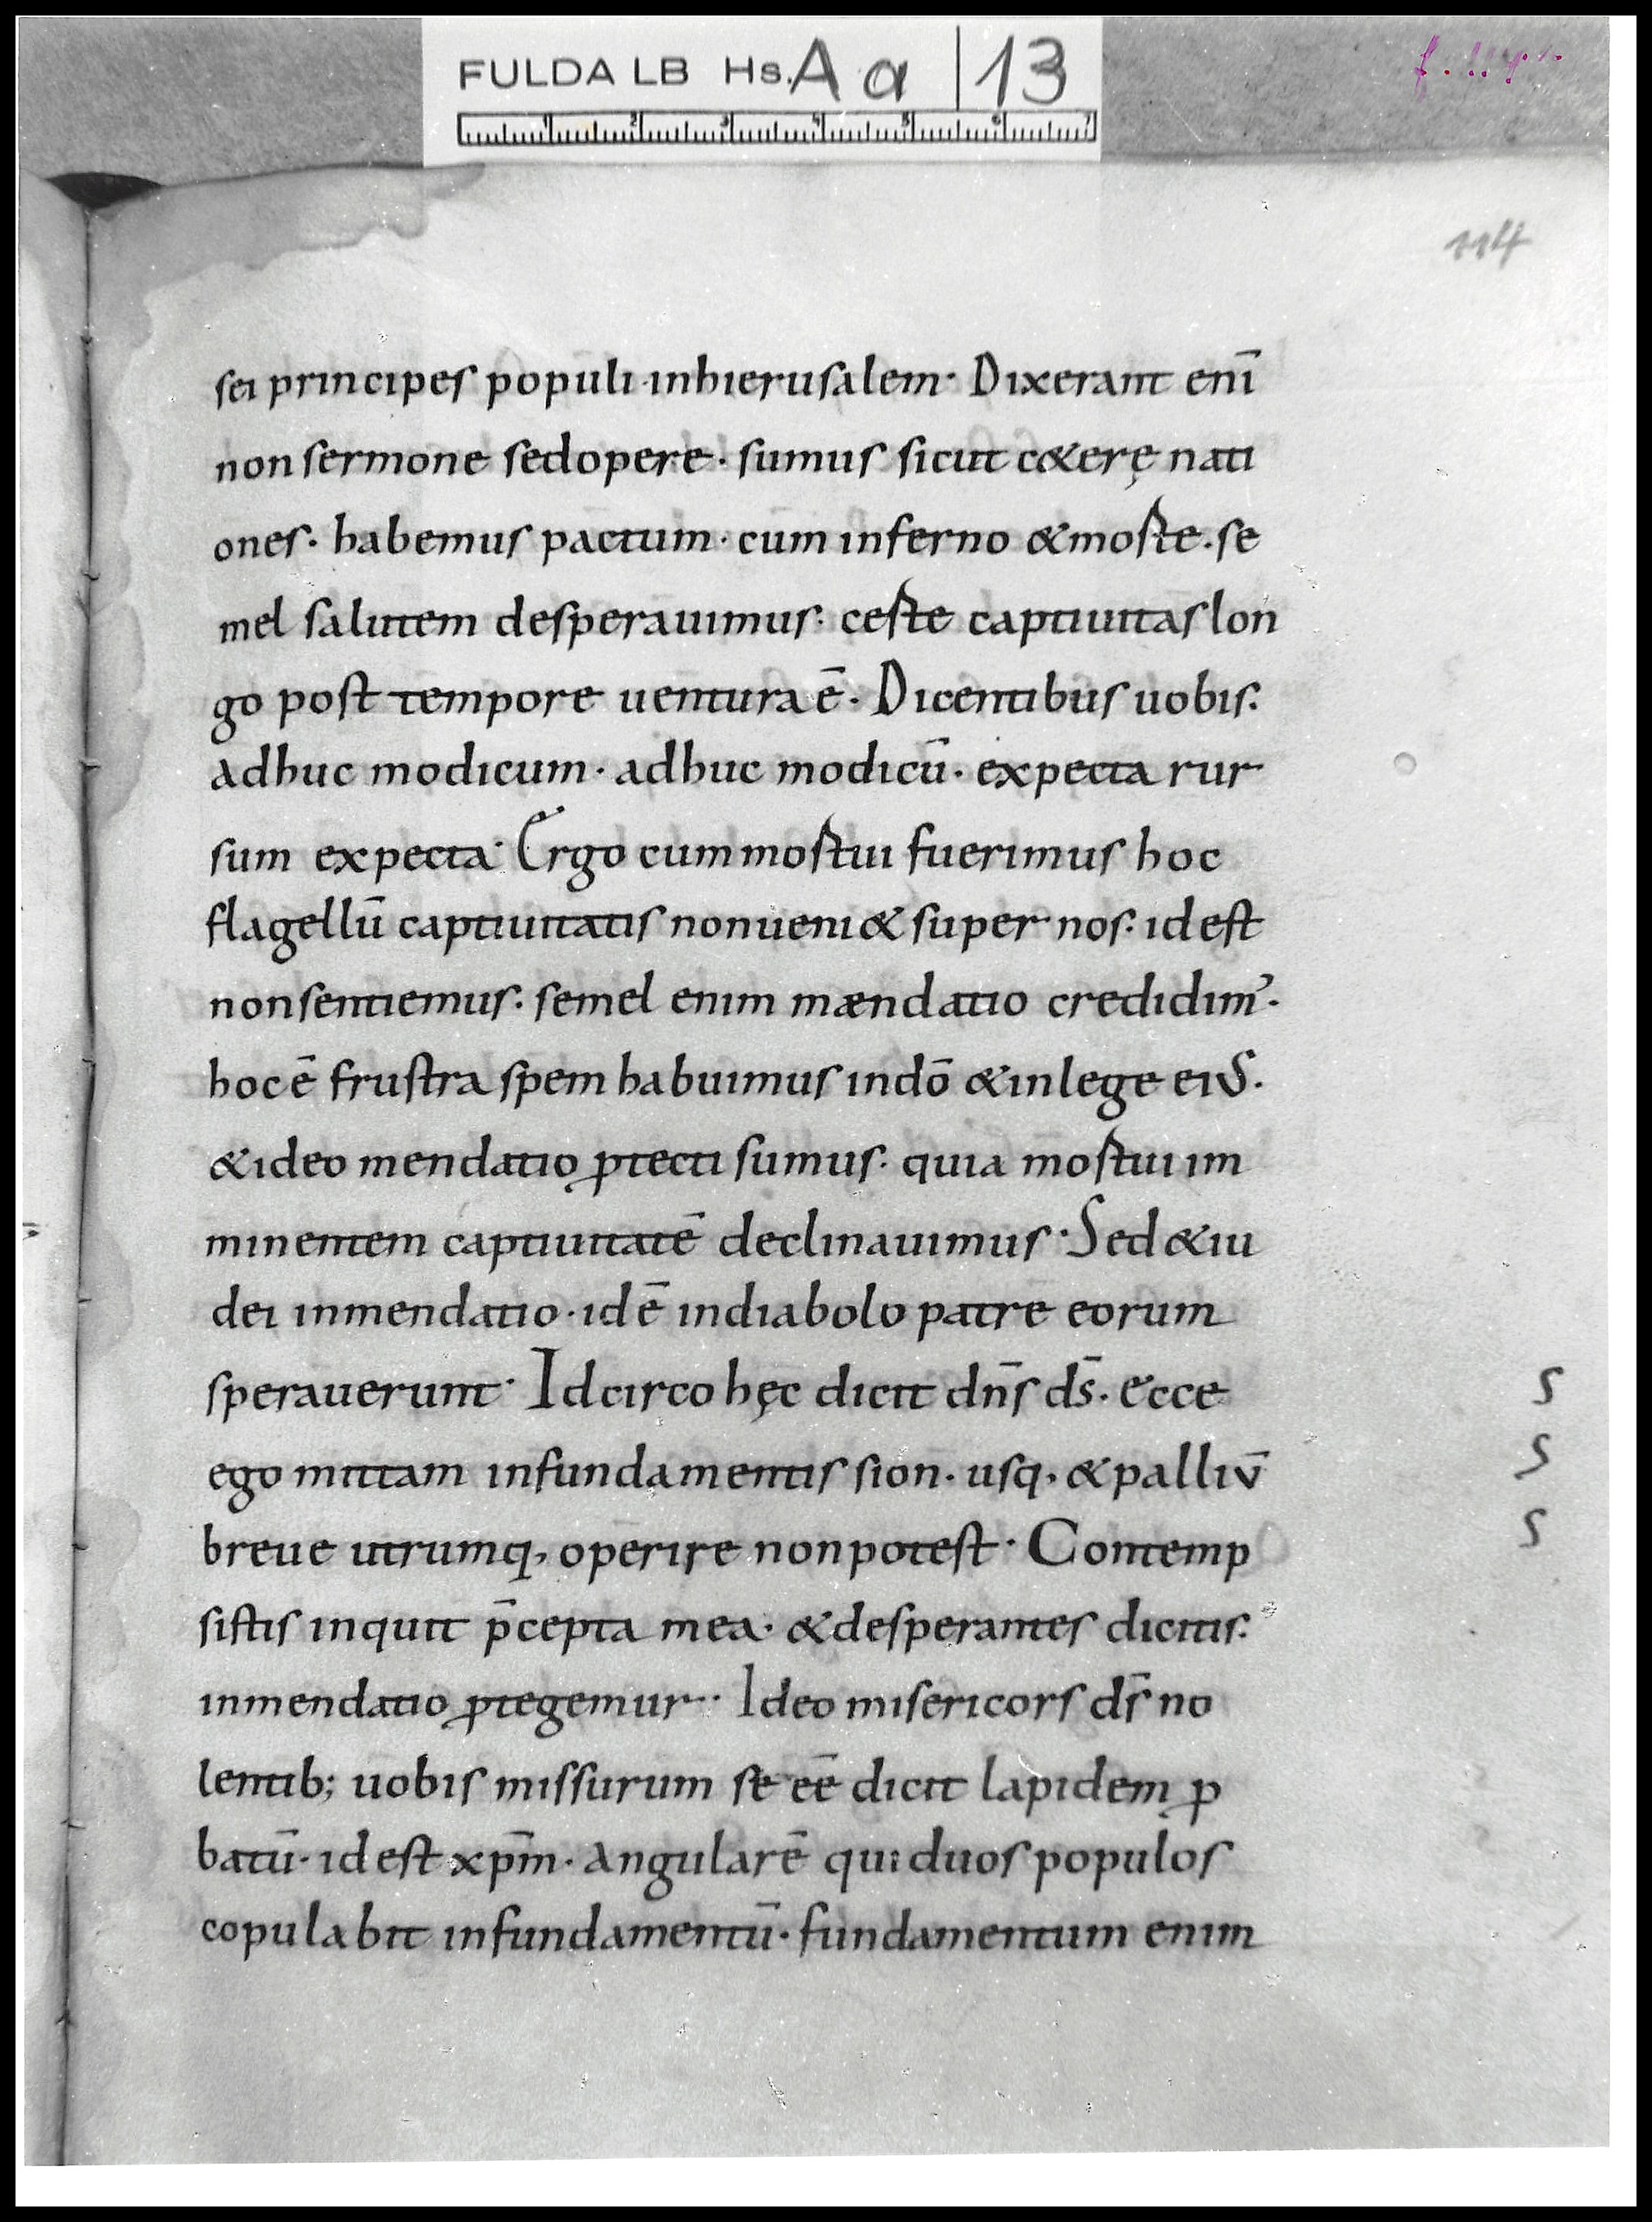 FULDA LB Hs. Aa 13
1 2 3 4 5 6 7
114
sei principes populi inhierusalem· Dixerant eni̅
non sermone sedopere· sumus sicut c&erę nati
ones· habemus pactum· cum inferno &morte· se
mel salutem desperauimus· certe captiuitas lon
go post tempore uentura e̅· Dicentibus uobis·
adhuc modicum· adhuc modicu̅· expecta rur
sum expecta· Ergo cum mortui fuerimus hoc
flagellu̅ captiuitatis nonueni& super nos· id est
nonsentiemus· semel enim mændatio credidim᾽·
hoc e̅ frustra spem habuimus indo̅ &inlege eius·
&ideo mendatio ꝓtecti sumus· quia mortui im
minentem captiuitate̅ declinauimus· Sed &iu
dei inmendatio· id e̅ indiabolo patre eorum
sperauerunt· Idcirco hęc dicit dn̅s ds̅· ecce
S
ego mittam infundamentis sion· usq, &palliu̅
S
breue utrumq, operire nonpotest· Contemp
S
sistis inquit p̅cepta mea· &desperantes dicitis·
inmendatio ꝓtegemur· Ideo misericors ds̅ no
lentib; uobis missurum se ee̅ dicit lapidem ꝓ
batu̅· id est xp̅m· angulare̅ qui duos populos
copulabit infundamentu̅· fundamentum enim